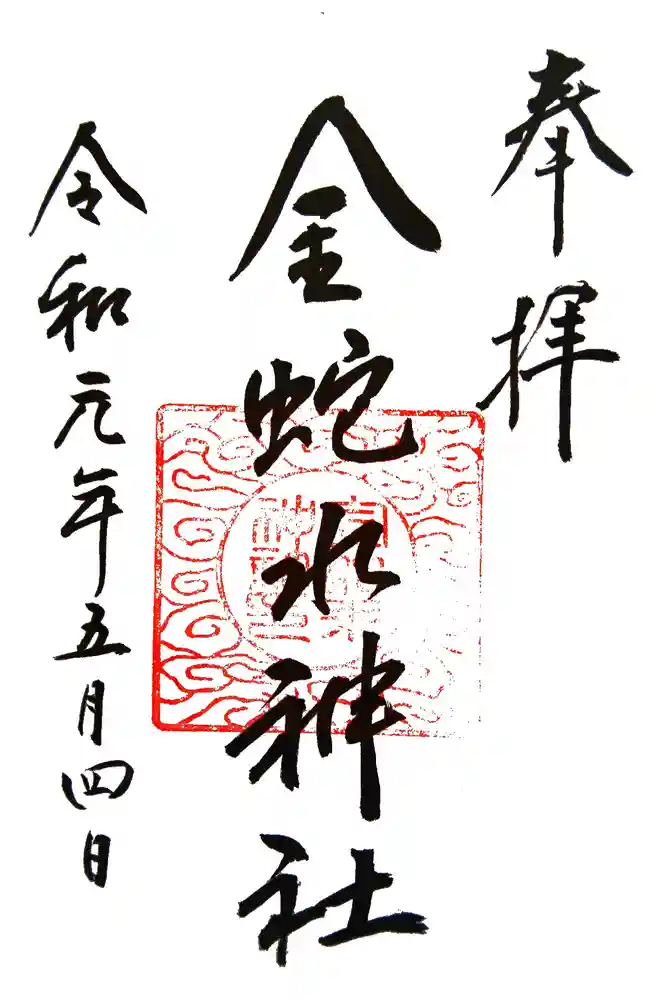 奉拝
金蛇水神社
令和元年五月四日